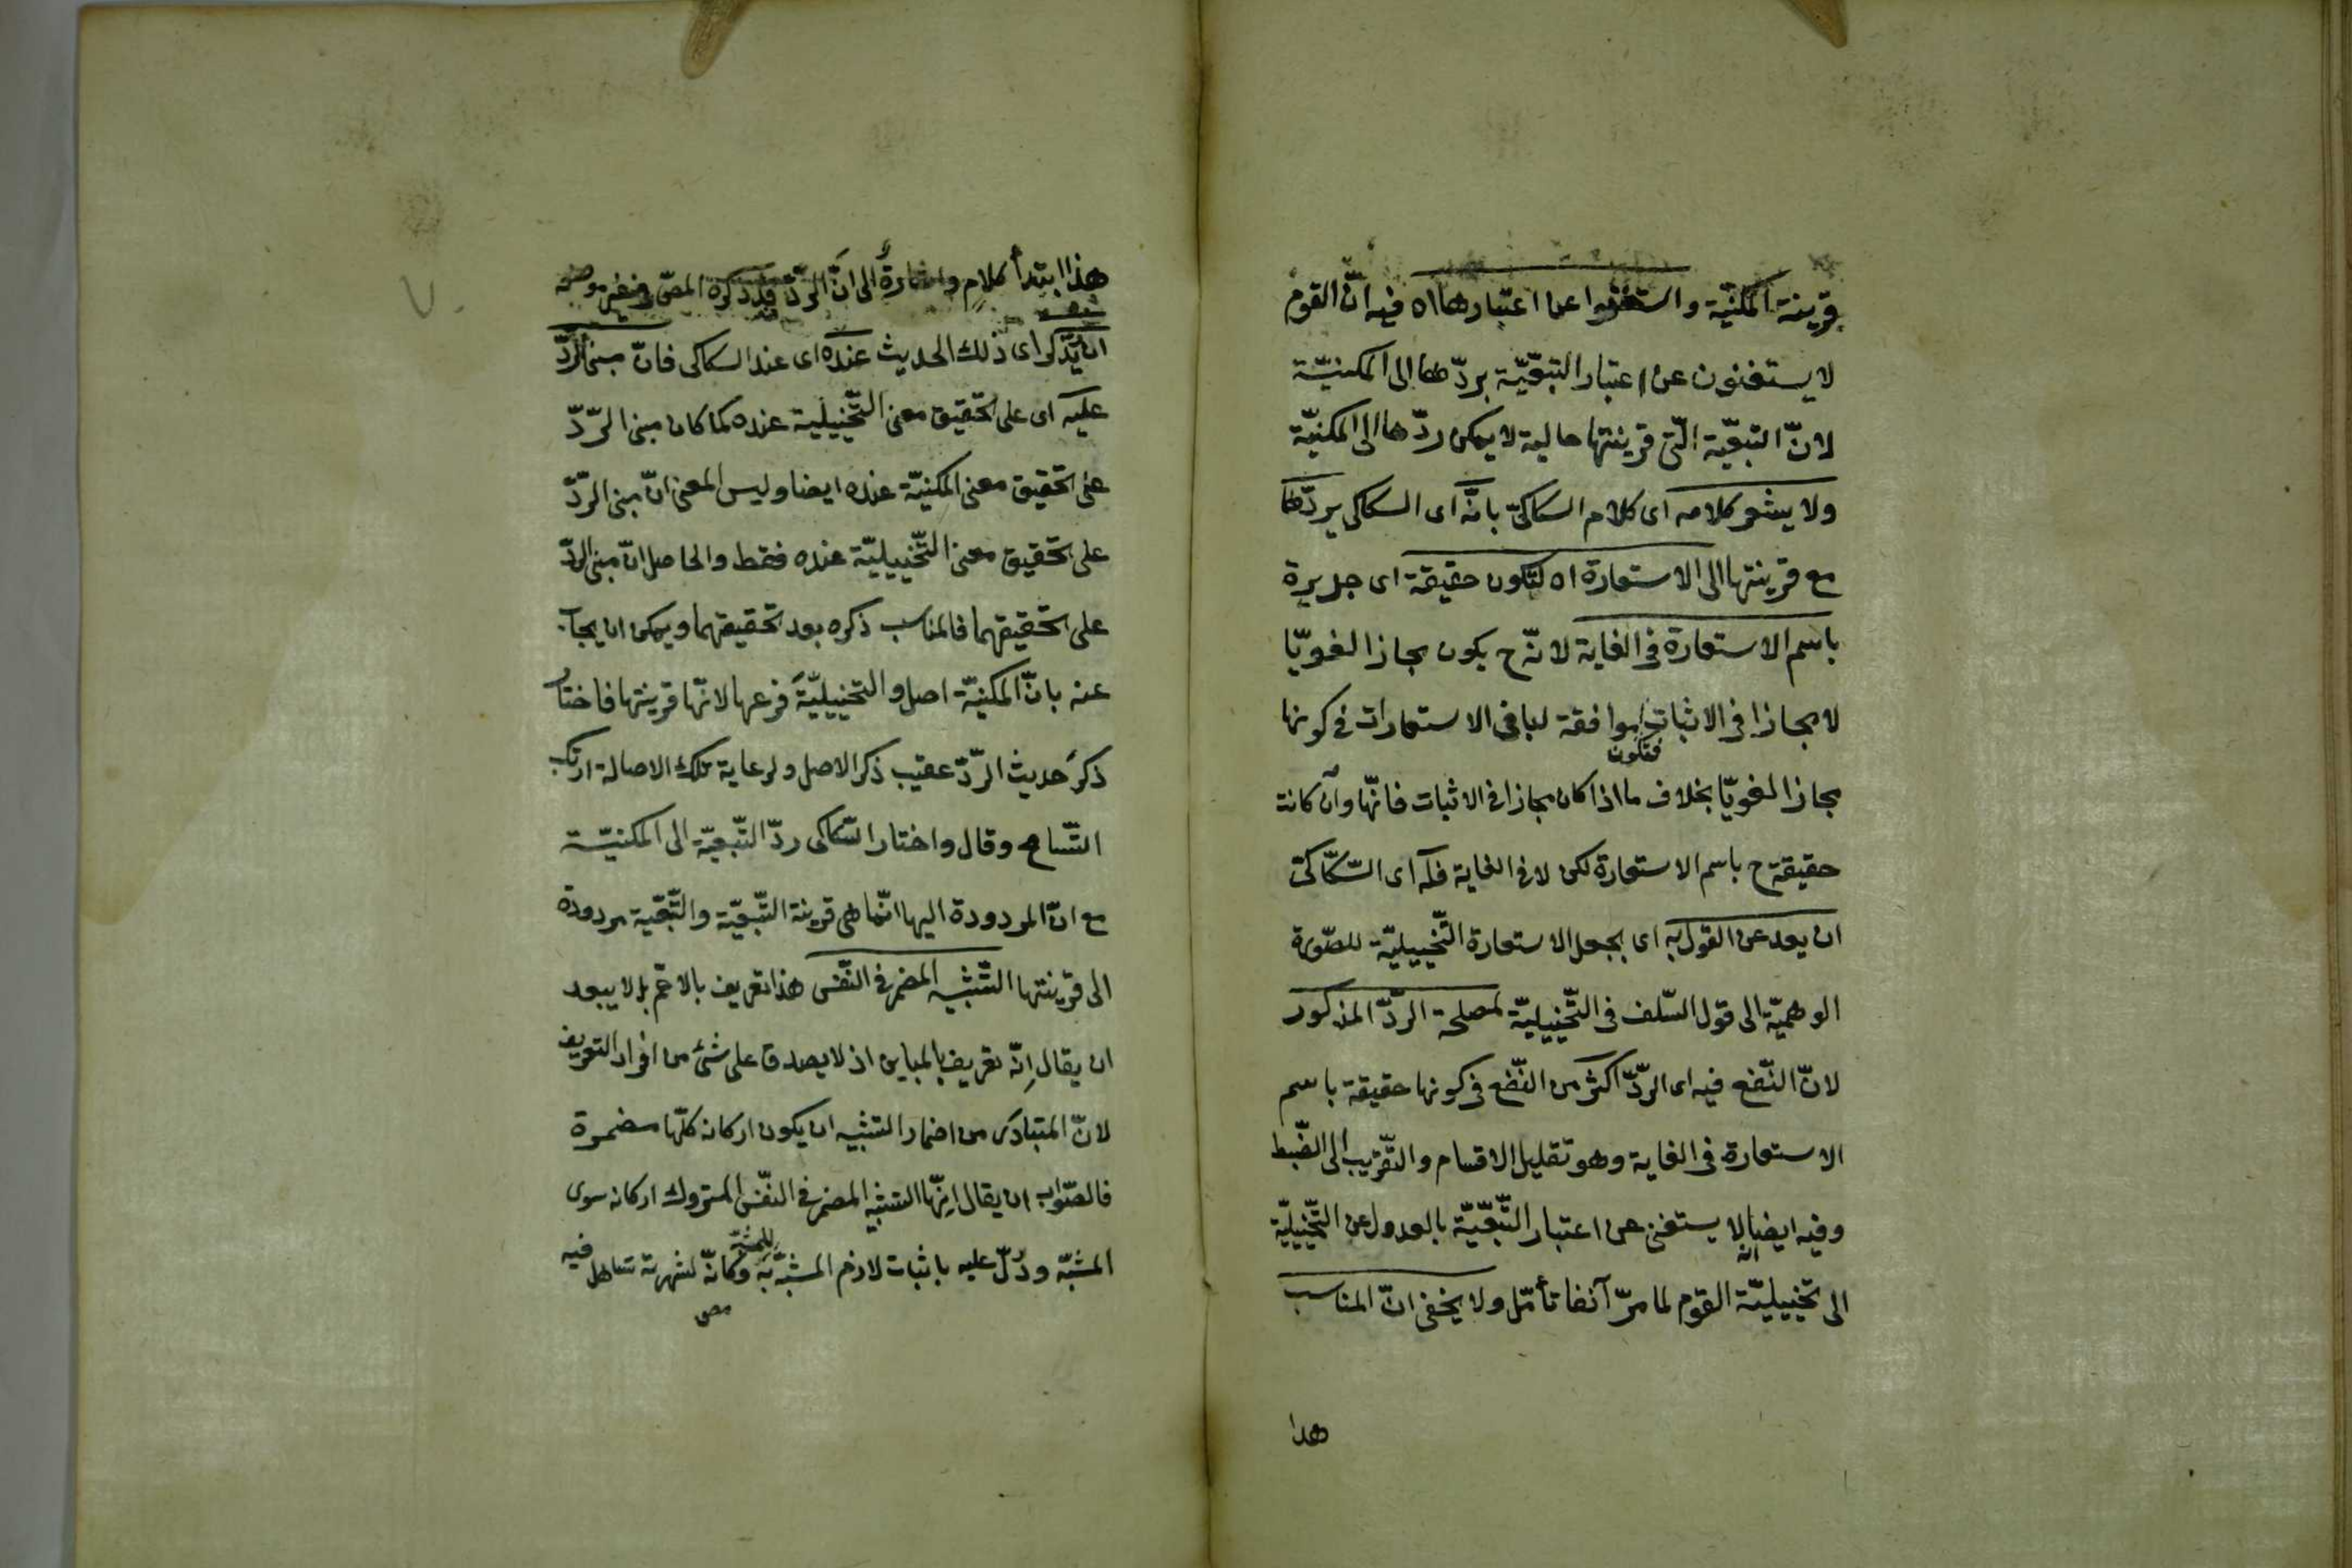 قرينة المكنيّة واستغنوا عن اعتبارها اه فيه انّ القوم
لا يستغنون عن اعتبار التبعّيّة بردّها الى المكنيّة
لانّ التبعيّة الّتى قرينتها حالية لا يمكن ردّها الى المكنيّة
ولا يشعر كلامه اى كلام السكاكىّ بانّه اى السكاكى يردّها
مع قرينتها الى الاستعارة اه لتكون حقيقة اى جديرة
باسم الاستعارة فى الغاية لانّه ح يكون مجازا لغويّا
لا مجازا فى الاثبات فتكون موافقة لباقى الاستعارات فى كونها
مجازا لغويّا بخلاف ما اذا كان مجازا فى الاثبات فانّها وان كانت
حقيقة ح باسم الاستعارة لكن لا فى الغاية فله اى السّكّاكىّ
ان يعدل عن القول به اى بجعل الاستعارة التّخييليّة للصّورة
الوهميّة الى قول السّلف فى التّخييليّة لمصلحة الرّدّ المذكور
لانّ النّفع فيه اى الرّدّ اكثر من النّفع فى كونها حقيقة باسم
الاستعارة فى الغاية وهو تقليل الاقسام والتّقريب الى الضّبط
وفيه ايضا انّه لا يستغنى عن اعتبار التّبعّيّة بالعدول عن التّخييليّة
الى تخييليّة القوم لما مرّ آنفا تأمّل ولا يخفى انّ المناسب
هذا
هذا ابتدأ كلام واشارة الى انّ الردّ قد ذكره المصّ فى غير موضعه
ان يذكر اى ذلك الحديث عنده اى عند السكاكى فانّ مبنى الردّ
عليه اى على تحقيق معنى التّخييلية عنده كما كان مبنى الرّدّ
على تحقيق معنى المكنيّة عنده ايضا وليس المعنى انّ مبنى الردّ
على تحقيق معنى التّخييليّة عنده فقط والحاصل انّ مبنى الردّ
على تحقيقهما فالمناسب ذكره بعد تحقيقهما ويمكن ان يجاب
عنه بانّ المكنيّة اصل والتخييليّة فرعها لانّها قرينتها فاختار
ذكر حديث الرّدّ عقيب ذكر الاصل ولرعاية تلك الاصالة ارتكب
التّسامح وقال واختار السّكاكى ردّ التّبعيّة الى المكنيّة
مع انّ المردودة اليها انّما هى قرينة التّبعيّة والتّبعّية مردودة
الى قرينتها التّشبيه المضمر فى النّفس هذا تعريف بالاعمّ بل لا يبعد
ان يقال إنّه تعريف بالمباين اذ لا يصدق على شئ من افراد التعريف
لانّ المتبادر من اضمار التشبيه ان يكون اركانه كلّها مضمرة
فالصّواب ان يقال إنّها التشبيه المضمر فى النّفس المتروك اركانه سوى
المشبّه ودُلّ عليه باثبات لازم المشبّه به للمشبّه وكانّه لشهرته تساهل فيه
مص